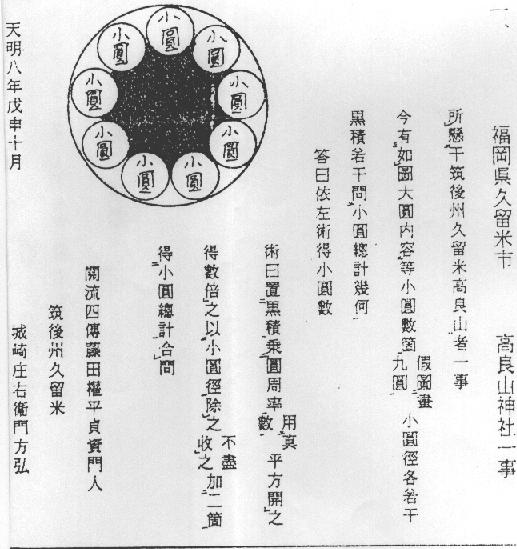 一、
福岡県久留米市 高良山神社一事
所懸于筑後州久留米高良山者一事
今有如圖大圓内容等小圓數箇 假圖畫九圓 小圓徑各若干
黒積若干問小圓總計幾何
答曰依左術得小圓數
術曰置黒積乗圓周率 用眞數 平方開之
得數倍之以小圓徑除之 不盡收之 加二箇
得小圓總計合問
小圓
小圓
小圓
小圓
小圓
小圓
小圓
小圓
小圓
關流四傳藤田權平貞資門人
筑後州久留米
城崎庄右衛門方弘
天明八年戊申十月